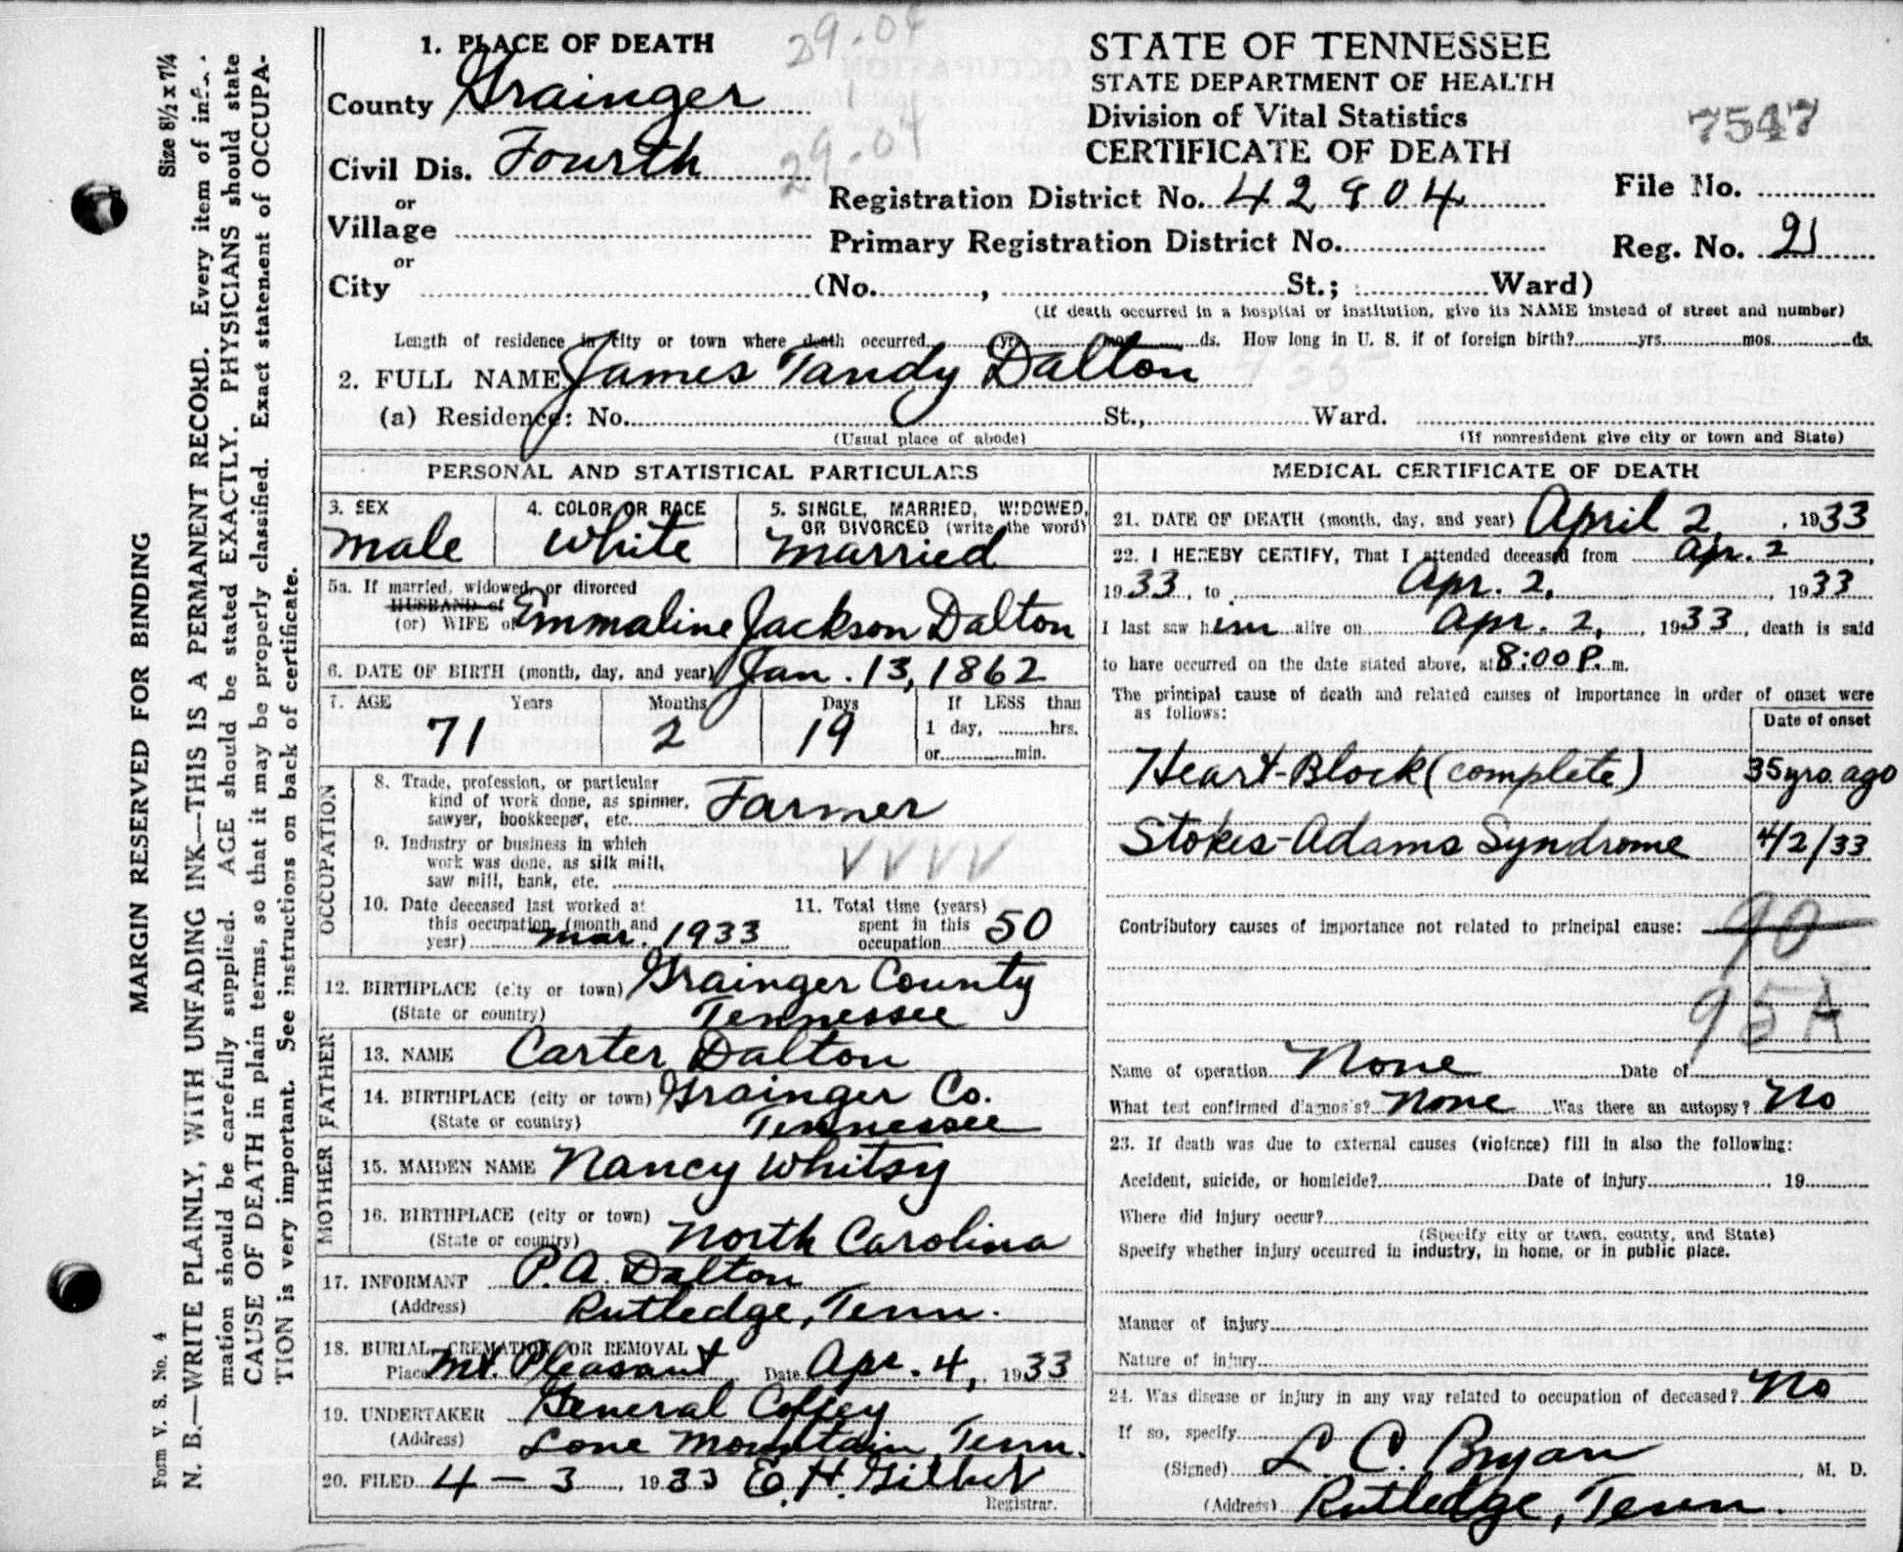 Size 8½ x 7¼
MARGIN RESERVED FOR BINDING
Form V. S. No. 4
N. B.—WRITE PLAINLY, WITH UNFADING INK—THIS IS A PERMANENT RECORD. Every item of
mation should be carefully supplied. AGE should be stated EXACTLY. PHYSICIANS should state
CAUSE OF DEATH in plain terms, so that it may be properly classified. Exact statement of OCCUPA-
TION is very important. See instructions on back of certificate.
29-04
1. PLACE OF DEATH
County Grainger
Civil Dis. Fourth
29-04
or
Village
or
City (No. , St.; Ward)
STATE OF TENNESSEE
STATE DEPARTMENT OF HEALTH
Division of Vital Statistics
CERTIFICATE OF DEATH
7547
Registration District No. 42904
File No.
Primary Registration District No.
Reg. No. 21
(If death occurred in a hospital or institution, give its NAME instead of street and number)
Length of residence in city or town where death occurred yrs. mos. ds. How long in U. S. if of foreign birth? yrs. mos. ds.
2. FULL NAME James Tandy Dalton
(a) Residence: No. St., Ward.
(Usual place of abode) (If nonresident give city or town and State)
PERSONAL AND STATISTICAL PARTICULARS
3. SEX male
4. COLOR OR RACE White
5. SINGLE, MARRIED, WIDOWED, OR DIVORCED (write the word) married
5a. If married, widowed, or divorced
HUSBAND of
(or) WIFE of Emmaline Jackson Dalton
6. DATE OF BIRTH (month, day, and year) Jan. 13, 1862
7. AGE Years Months Days If LESS than
71 2 19 1 day, hrs.
or min.
OCCUPATION
8. Trade, profession, or particular
kind of work done, as spinner,
sawyer, bookkeeper, etc. Farmer
9. Industry or business in which
work was done, as silk mill,
saw mill, bank, etc.
10. Date deceased last worked at
this occupation (month and
year) Mar. 1933
11. Total time (years)
spent in this
occupation 50
12. BIRTHPLACE (city or town) Grainger County
(State or country) Tennessee
FATHER
13. NAME Carter Dalton
14. BIRTHPLACE (city or town) Grainger Co.
(State or country) Tennessee
MOTHER
15. MAIDEN NAME Nancy Whitsy
16. BIRTHPLACE (city or town)
(State or country) North Carolina
17. INFORMANT P. A. Dalton
(Address) Rutledge, Tenn.
18. BURIAL, CREMATION, OR REMOVAL
Place Mt. Pleasant Date Apr. 4, 1933
19. UNDERTAKER General Coffey
(Address) Lone Mountain, Tenn.
20. FILED 4 - 3, 1933 E. H. Gilbert
Registrar.
MEDICAL CERTIFICATE OF DEATH
21. DATE OF DEATH (month, day, and year) April 2, 1933
22. I HEREBY CERTIFY, That I attended deceased from Apr. 2
1933, to Apr. 2, 1933
I last saw him alive on Apr. 2, 1933, death is said
to have occurred on the date stated above, at 8:00 P. m.
The principal cause of death and related causes of importance in order of onset were
as follows: Date of onset
Heart-Block (complete) 35 yrs. ago
Stokes-Adams Syndrome 4/2/33
Contributory causes of importance not related to principal cause: 90
95A
Name of operation None Date of
What test confirmed diagnosis? None Was there an autopsy? No
23. If death was due to external causes (violence) fill in also the following:
Accident, suicide, or homicide? Date of injury 19
Where did injury occur?
(Specify city or town, county, and State)
Specify whether injury occurred in industry, in home, or in public place.
Manner of injury
Nature of injury
24. Was disease or injury in any way related to occupation of deceased? No
If so, specify
(Signed) L. C. Bryan, M. D.
(Address) Rutledge, Tenn.